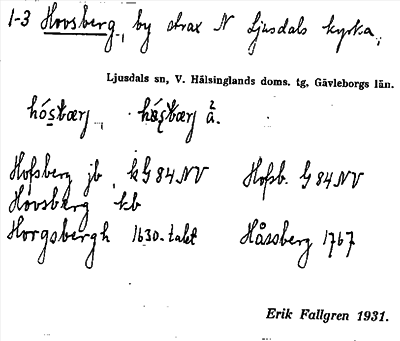 1-3 Hovsberg, by strax N Ljusdals kyrka,
Ljusdals sn, V. Hälsinglands doms. tg, Gävleborgs län.
Hofsberg jb kG 84 NV Hofsb. G 84 NV
Hovsberg kb
Horgsbergh 1630-talet Håssberg 1767
Erik Fallgren 1931.